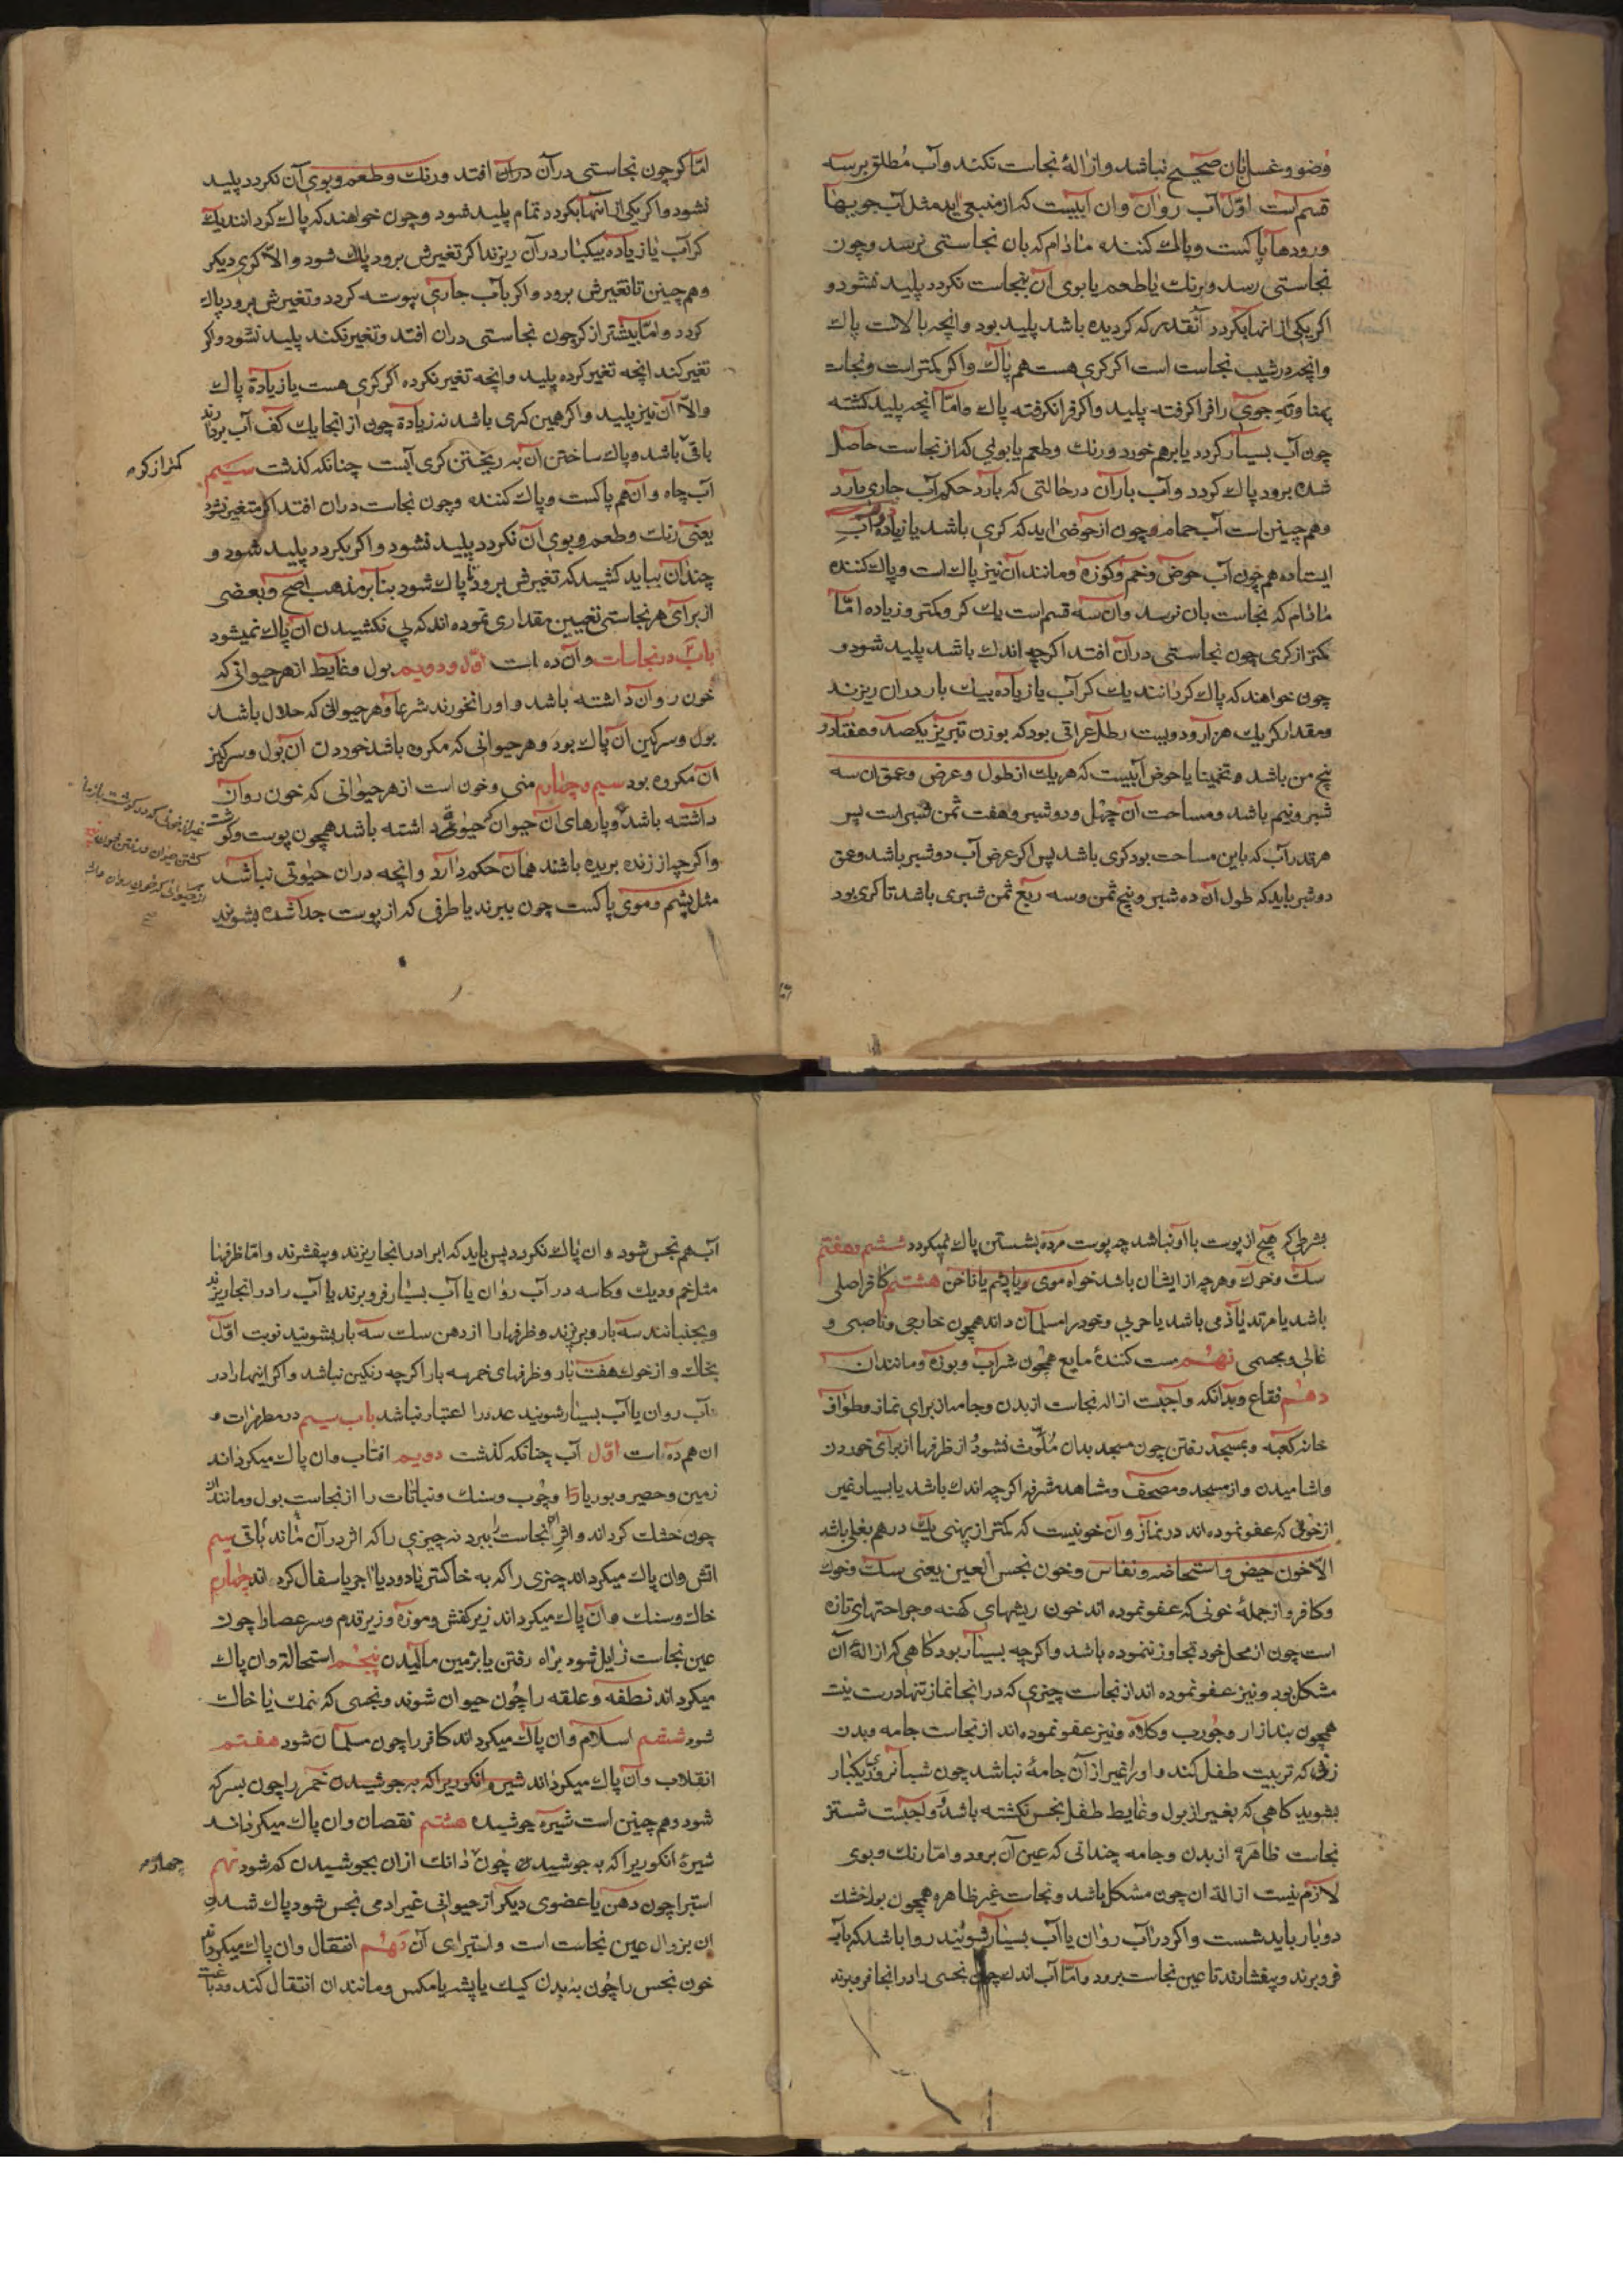 وضو و غسل بان صحیح نباشد و ازالهٔ نجاست نکند و آب مُطلق بر سه
قسم است اوّل آب روان و ان آبیست که از منبعی اید مثل آب جویها
و رودها پاکست و پاک کننده مادام که بان نجاستی نرسد و چون
نجاستی رسد و برنک یا طعم یا بوی آن بنجاست نکردد پلید نشود و
اکر یکی از انها بکردد آنقدر که کردیده باشد پلید بود و انچه بالاست پاک
و انچه در شیب نجاست است اکر کری هست هم پاک و اکر کمتر است و نجاسة
پهنا و تهِ جوی را فرا کرفته پلید و اکر فرا نکرفته پاک و امّا آنچه پلید کشته
چون آب بسیار کردد یا برهم خورد و رنک و طعم یا بویی که از نجاست حاصل
شده برود پاک کردد و آب باران در حالتی که بارد حکم آب جاری دارد
و هم چنین است آب حمام و چون از حوضی اید که کری باشد یا زیاده آبِ
ایستاده هم چون آب حوض و خم و کوزه و مانند آن نیز پاک است و پاک کننده
مادام که نجاست بان نرسد و ان سه قسم است یک کر و کمتر و زیاده امّا
کمتر از کری چون نجاستی در آن افتد اکر چه اندک باشد پلید شود و
چون خواهند که پاک کردانند یک کر آب یا زیاده بیک بار در ان ریزند
و مقدار کر یک هزار و دویست رطل عراقی بود که بوزن تبریز یکصد و هفتاد و
پنج من باشد و تخمینا یا حوض آبیست که هر یک از طول و عرض و عمق ان سه
شبر و نیم باشد و مساحت آن چهل و دو شبر و هفت ثمن شبر است پس
هر قدر آب که باین مساحت بود کری باشد پس اکر عرض آب دو شبر باشد و عمق
دو شبر باید که طول ان ده شبر و پنج ثمن و سه ربع ثمن شبری باشد تا کری بود
امّا کر چون نجاستی در آن افتد و رنک و طعم و بوی آن نکردد پلید
نشود و اکر یکی از انها بکردد تمام پلید شود و چون خواهند که پاک کردانند یک
کر آب یا زیاده بیکبار در آن ریزند اکر تغیرش برود پاک شود و الاّ کری دیکر
و هم چنین تا تغیرش برود و اکر بآب جاری پیوسته کردد و تغیرش برود پاک
کردد و امّا بیشتر از کر چون نجاستی در ان افتد و تغیر نکند پلید نشود و اکر
تغیر کند انچه تغیر کرده پلید و انچه تغیر نکرده اکر کری هست یا زیادة پاک
و الاّ آن نیز پلید و اکر همین کری باشد نه زیادة چون از انجا یک کف آب بردارند
باقی باشد و پاک ساختن آن به ریختن کری آبست چنانکه کذشت سیم
کمتر از کر
آب چاه و ان هم پاکست و پاک کننده و چون نجاست در ان افتد اکر متغیر نشود
یعنی رنک و طعم و بوی آن نکردد پلید نشود و اکر بکردد پلید شود و
چندان بباید کشید که تغیرش برود تا پاک شود بنا بر مذهب اصح و بعضی
از برای هر نجاستی تعیین مقداری نموده اند که بی نکشیدن آن پاک نمیشود
باب در نجاسات و آن ده است اوّل و دویم بول و غایط از هر حیوانی که
خون روان داشته باشد و او را نخورند شرعاً و هر حیوانی که حلال باشد
بول و سرکین آن پاک بود و هر حیوانی که مکروه باشد خوردن ان بول و سرکین
ان مکروه بود سیم و چهارم منی و خون است از هر حیوانی که خون روان
داشته باشد و پارهای ان حیوان که حیوتی داشته باشد همچون پوست و کوشت
و اکر چه از زنده بریده باشند همان حکم دارد و انچه در ان حیوتی نباشد
مثل پشم و موی پاکست چون ببرند یا طرفی که از پوست جدا شده بشویند
بشرطی که هیچ از پوست با او نباشد چه پوست مرده بشستن پاک نمیکردد ششم و هفتم
سک و خوک و هر چه از ایشان باشد خواه موی و یا پشم یا ناخن هشتم کافر اصلی
باشد یا مرتد یا ذمی باشد یا حربی و خود را مسلمان داند همچون خارجی و ناصبی و
غالی و مجسمی نهم مست کنندهٔ مایع همچون شراب و بوزه و مانند ان
دهم فقاع و بدانکه واجبست ازاله نجاست از بدن و جامه از برای نماز و طواف
خانه کعبه و بمسجد رفتن چون مسجد بدان مُلّوث نشود و از ظرفها از برای خوردن
و اشامیدن و از مسجد و مصحف و مشاهد مشرفه اکر چه اندک باشد یا بسیار غیر
از خونی که عفو نموده اند در نماز و آن خونیست که کمتر از پهنی یک درهم بغلی باشد
الاّ خون حیض و استحاضه و نفاس و خون نجس العین یعنی سک و خوک
و کافر و از جملهٔ خونی که عفو نموده اند خون ریشهای کهنه و جراحتهای تازه
است چون از محل خود تجاوز ننموده باشد و اکر چه بسیار بود کاهی که ازالهٔ آن
مشکل بود و نیز عفو نموده اند از نجاست چیزی که در انجا نماز تنها درست نیست
همچون بند ازار و جُورب و کلاه و نیز عفو نموده اند از نجاست جامه و بدن
زنی که تربیت طفل کند و او را غیر از آن جامهٔ نباشد چون شبانروزی یکبار
بشوید کاهی که بغیر از بول و غایط طفل نجس نکشته باشد و واجبست شستن
نجاست ظاهره از بدن و جامه چندانی که عین آن برود و امّا رنک و بوی
لازم نیست ازالة ان چون مشکل باشد و نجاست غیر ظاهره همچون بول خشک
دو بار باید شست و اکر در آب روان یا آب بسیار شویند روا باشد که بآب
فرو برند و بیفشارند تا عین نجاست برود و امّا آب اندک چون نجسی را در انجا فرو برند
آب هم نجس شود و ان پاک نکردد پس باید که اب را در انجا ریزند و بیفشرند و امّا ظرفها
مثل خم و دیک و کاسه در آب روان یا آب بسیار فرو برند یا آب را در انجا ریزند
و بجنبانند سه بار و بریزند و ظرفها را از دهن سک سه بار بشویند نوبت اوّل
بخاک و از خوک هفت بار و ظرفهای خمر سه بار اکر چه رنکین نباشد و اکر اینها را در
آب روان یا آب بسیار شویند عدد را اعتبار نباشد باب سیم در مطهرات و
ان هم ده است اوّل آب چنانکه کذشت دویم افتاب و ان پاک میکرداند
زمین و حصیر و بوریا را و چوب و سنک و نباتات را از نجاست بول و مانند ان
چون خشک کرداند و اثر نجاست را ببرد نه چیزی را که اثر در آن بماند باقی سیم
اتش و ان پاک میکرداند چیزی را که به خاکستر یا دود یا اجر یا سفال کرداند چهارم
خاک و سنک و ان پاک میکرداند زیر کفش و موزه و زیر قدم و سر عصا را چون
عین نجاست زایل شود براه رفتن یا بزمین مالیدن پنجم استحالة و ان پاک
میکرداند نطفه و علقه را چون حیوان شوند و نجسی که نمک یا خاک
شود ششم اسلام و ان پاک میکرداند کافر را چون مسلمان شود هفتم
انقلاب و آن پاک میکرداند خمر را چون بسرکه
شود و هم چنین است شیره جوشیده هشتم نقصان و ان پاک میکرداند
شیرهٔ انکوری را که به جوشیدن چون دانک از ان بجوشیدن کم شود نهم
چهارم
استبرا چون دهن یا عضوی دیکر از حیوانی غیر ادمی نجس شود پاک شدن
ان بزوال عین نجاست است و استبرای آن دهم انتقال و ان پاک میکرداند
خون نجس را چون به بدن کیک یا پشه یا مکس و مانند ان انتقال کند